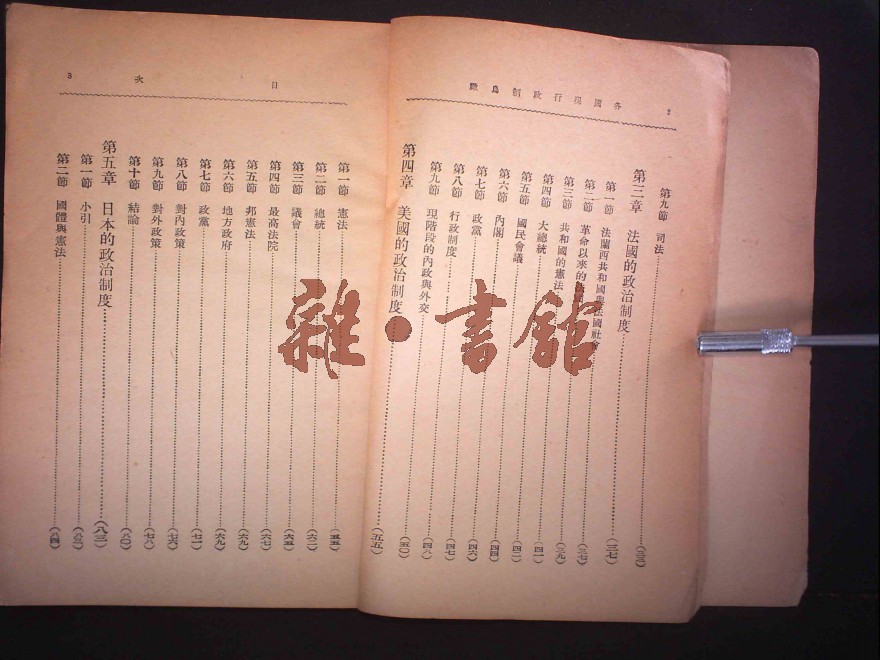 各國現行政制鳥瞰 2
第九節 司法……(三三)
第三章 法國的政治制度……(三七)
第一節 法蘭西共和國與法國社會……(三七)
第二節 革命以來的法國……(三九)
第三節 共和國的憲法……(三九)
第四節 大總統……(四一)
第五節 國民會議……(四二)
第六節 內閣……(四四)
第七節 政黨……(四六)
第八節 行政制度……(四七)
第九節 現階段的內政與外交……(五〇)
第四章 美國的政治制度……(五五)
目次 3
第一節 憲法……(五五)
第二節 總統……(六二)
第三節 議會……(六五)
第四節 最高法院……(六七)
第五節 邦憲法……(六九)
第六節 地方政府……(六九)
第七節 政黨……(七一)
第八節 對內政策……(七六)
第九節 對外政策……(七八)
第十節 結論……(八〇)
第五章 日本的政治制度……(八三)
第一節 小引……(八三)
第二節 國體與憲法……(八四)
雜·書館